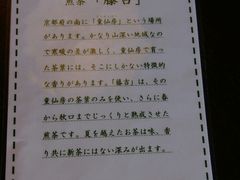 煎茶「藤吉」
京都府の南に「童仙房」という場所
があります。かなり山深い地域なの
で寒暖の差が激しく、童仙房で育っ
た茶葉には、そこにしかない特徴的
な香りがあります。「藤吉」は、その
童仙房の茶葉のみを使い、さらに春
から秋口までじっくりと熟成させた
煎茶です。夏を越えたお茶は味、香
り共に新茶にはない深みが出ます。